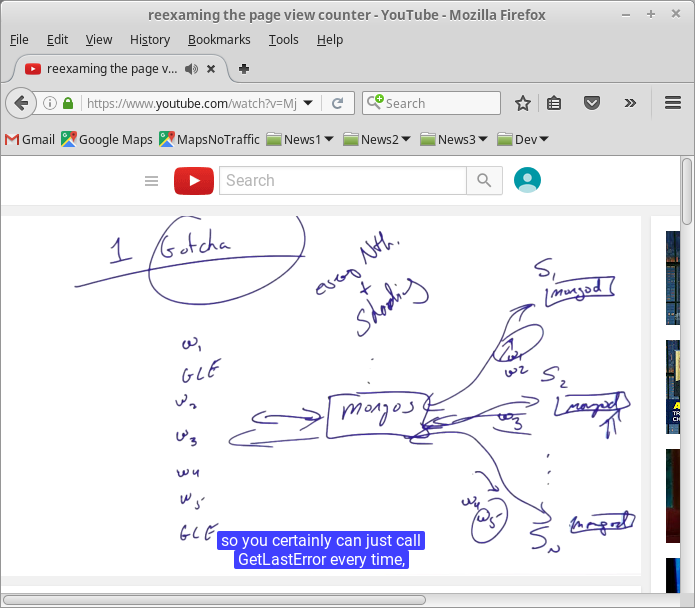 reexaming the page view counter - YouTube - Mozilla Firefox
File Edit View History Bookmarks Tools Help
reexaming the page v...
https://www.youtube.com/watch?v=Mj
Search
Gmail Google Maps MapsNoTraffic News1 News2 News3 Dev
Search
1 Gotcha
every Nth.
+
Sharding
S1
mongod
w1
w2
S2
mongod
w3
mongos
w1
GLE
w2
w3
w4
w5
GLE
w4
w5
SN
mongod
so you certainly can just call
GetLastError every time,